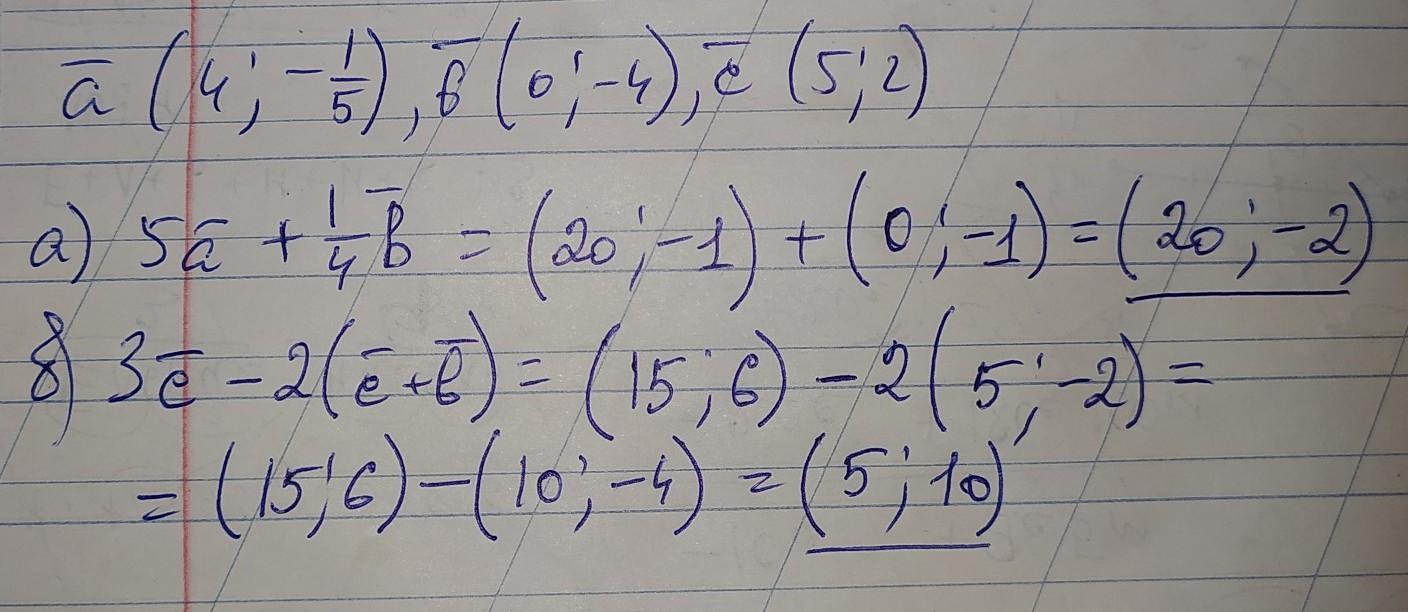 a̅ (4; -1/5), b̅ (0; -4), c̅ (5; 2)
а) 5a̅ + 1/4 b̅ = (20; -1) + (0; -1) = (20; -2)
б) 3c̅ - 2(c̅ + b̅) = (15; 6) - 2(5; -2) =
= (15; 6) - (10; -4) = (5; 10)